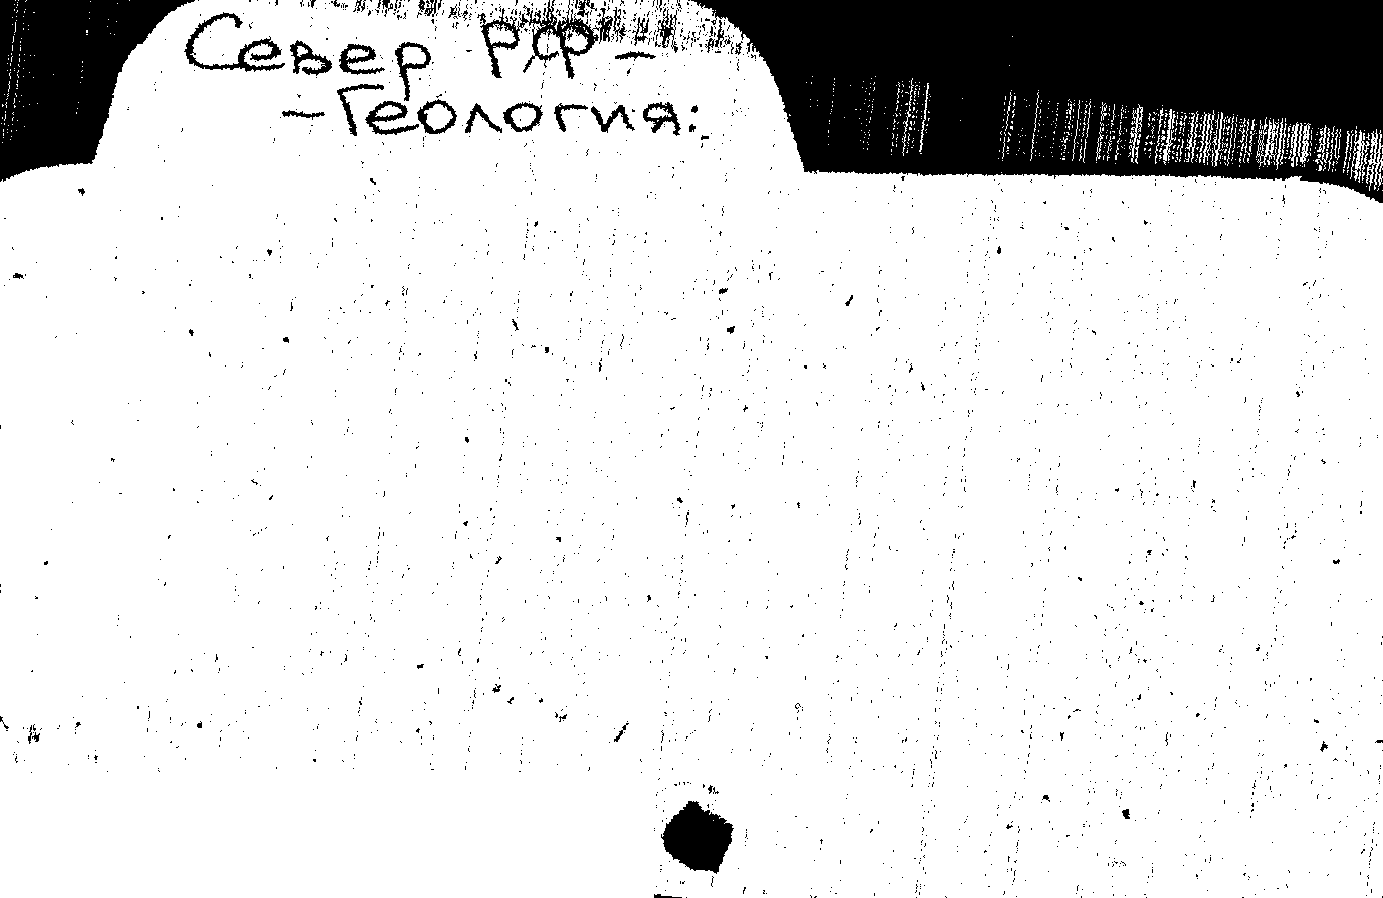 Север РФ -
- Геология: